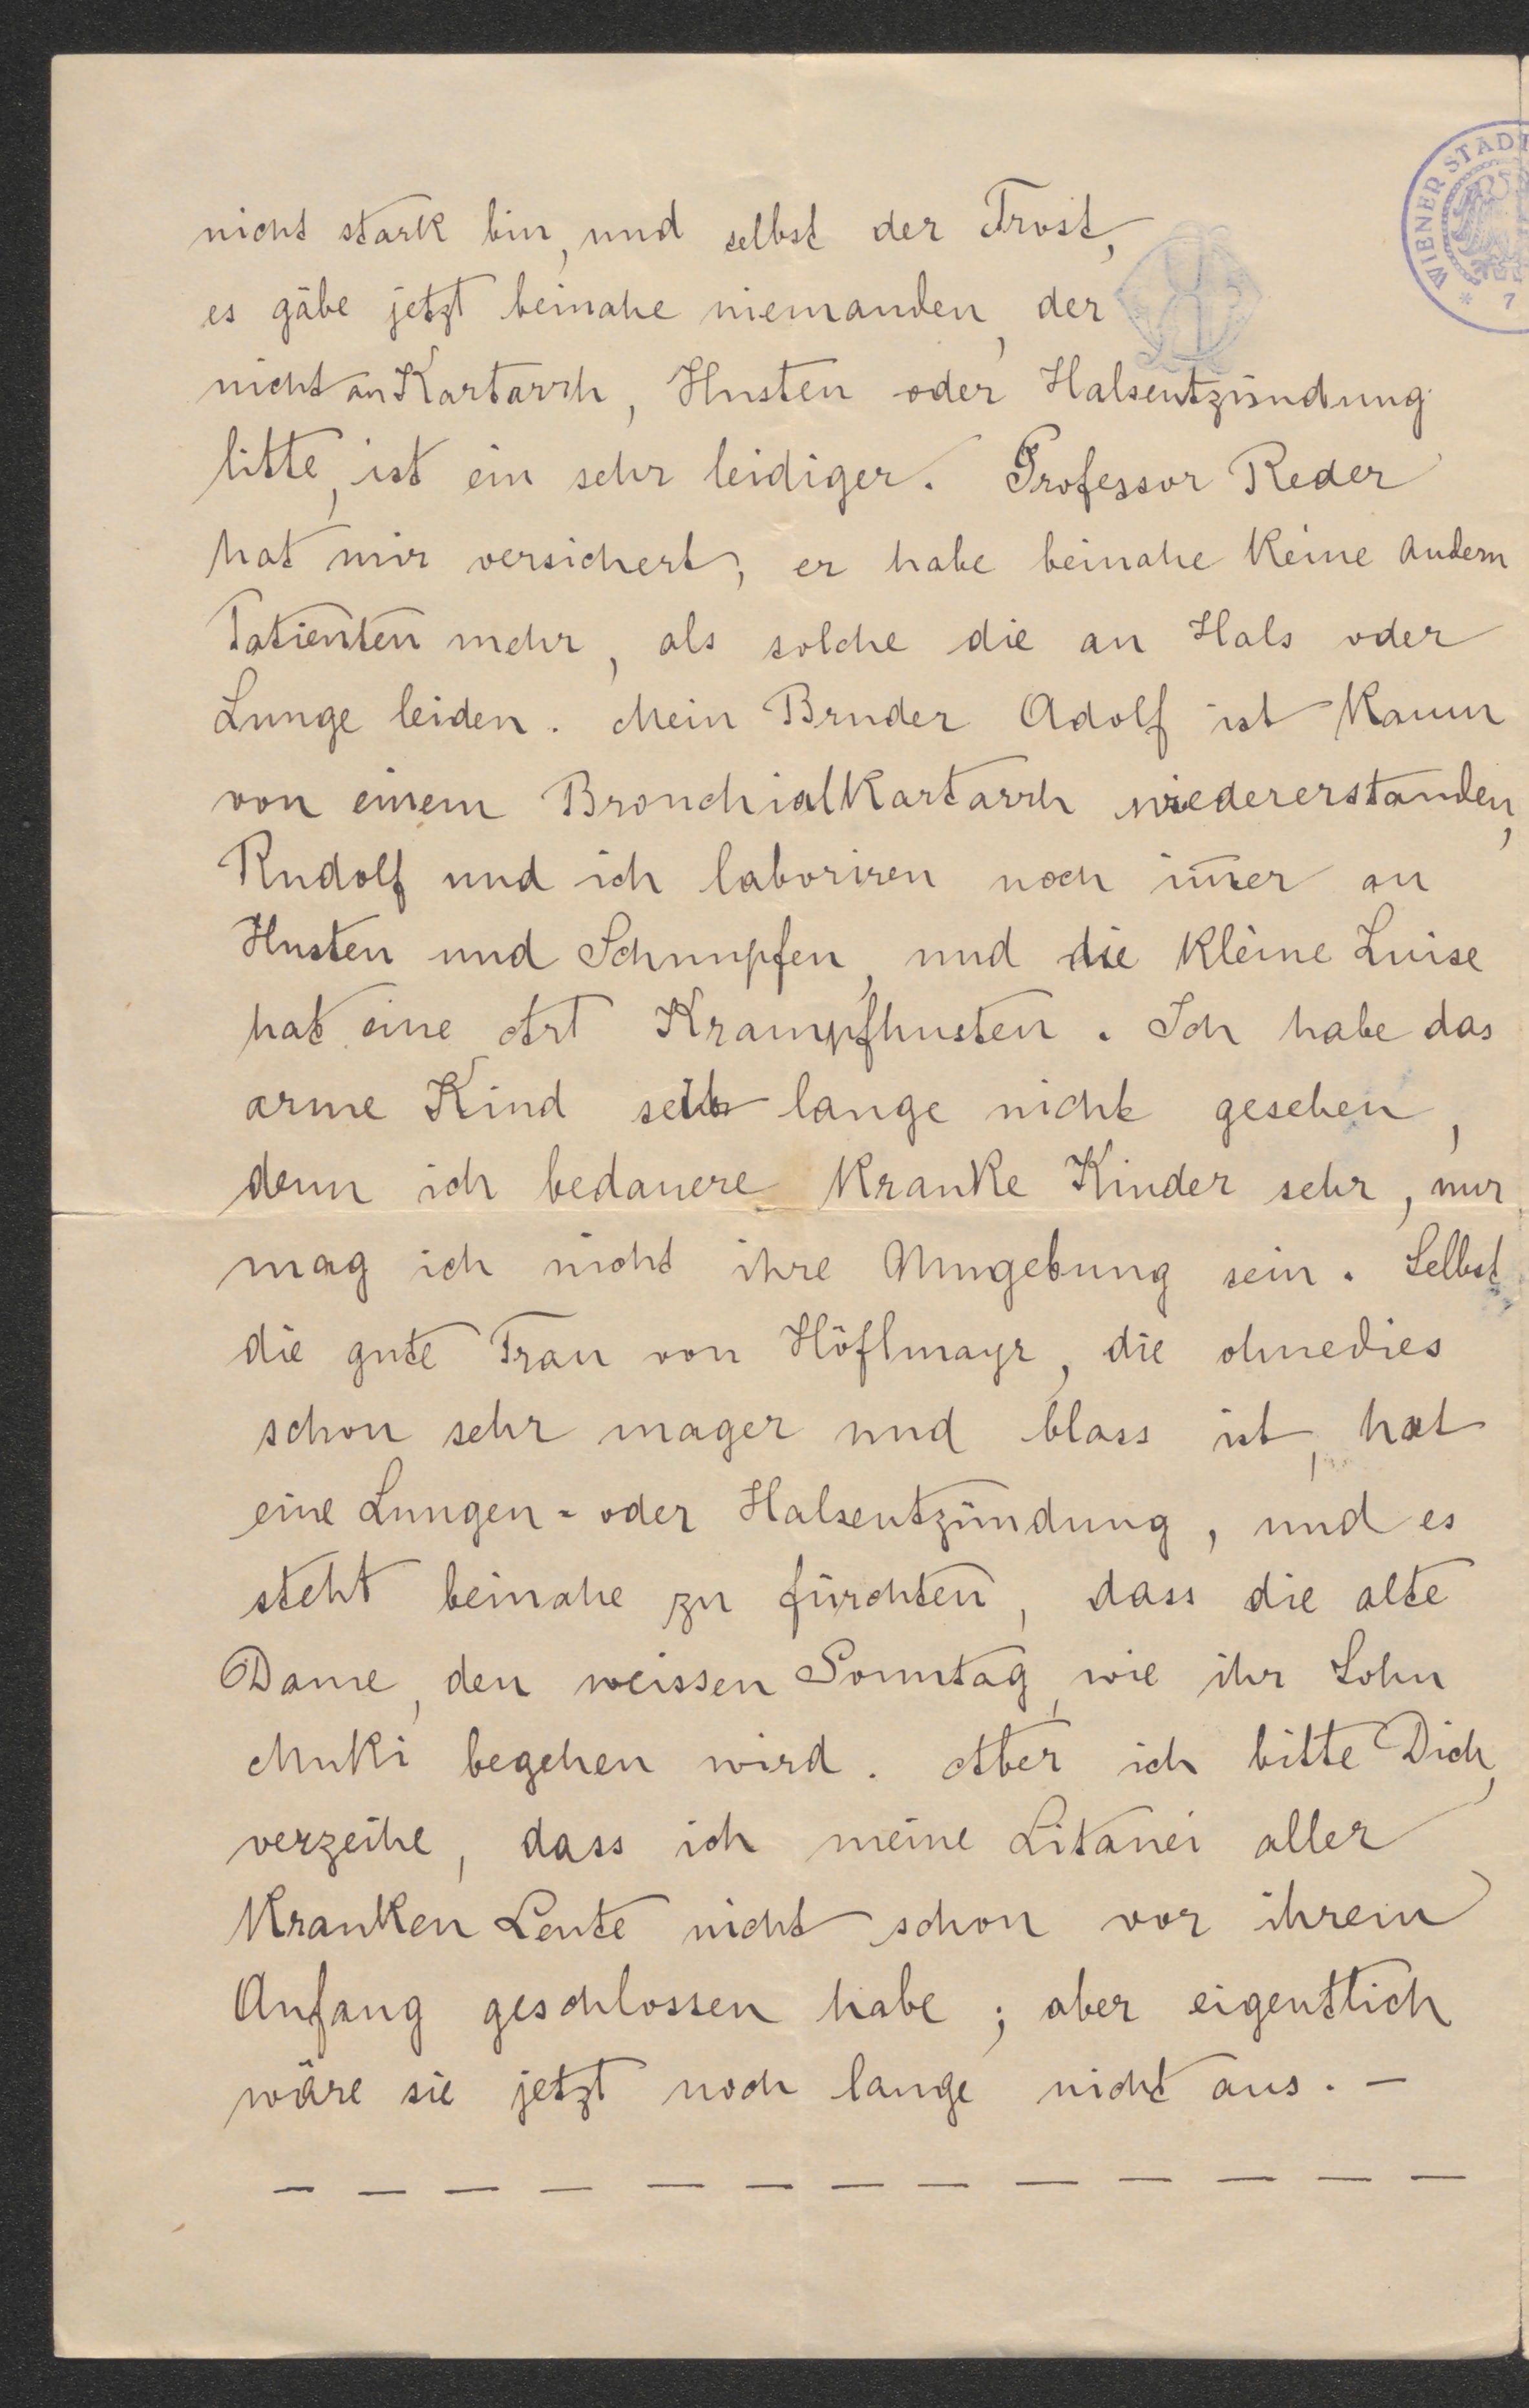 nicht stark bin, und selbst der Trost,
es gäbe jetzt beinahe niemanden, der
nicht an Kartarrh, Husten oder Halsentzündung
litte, ist ein sehr leidiger. Professor Reder
hat mir versichert, er habe beinahe keine andern
Patienten mehr, als solche die an Hals oder
Lunge leiden. Mein Bruder Adolf ist kaum
von einem Bronchialkartarrh wiedererstanden,
Rudolf und ich laboriren noch im̅er an
Husten und Schnupfen, und die kleine Luise
hat eine Art Krampfhusten. Ich habe das
arme Kind seit lange nicht gesehen,
denn ich bedauere kranke Kinder sehr, nur
mag ich nicht ihre Umgebung sein. Selbst
die gute Frau von Höflmayr, die ohnedies
schon sehr mager und blass ist, hat
eine Lungen- oder Halsentzündung, und es
steht beinahe zu fürchten, dass die alte
Dame, den weissen Sonntag, wie ihr Sohn
Muki begehen wird. Aber ich bitte Dich,
verzeihe, dass ich meine Litanei aller
kranken Leute nicht schon vor ihrem
Anfang geschlossen habe; aber eigentlich
wäre sie jetzt noch lange nicht aus. —
— — — — — — — — — — — — —
WIENER STADT
* 7